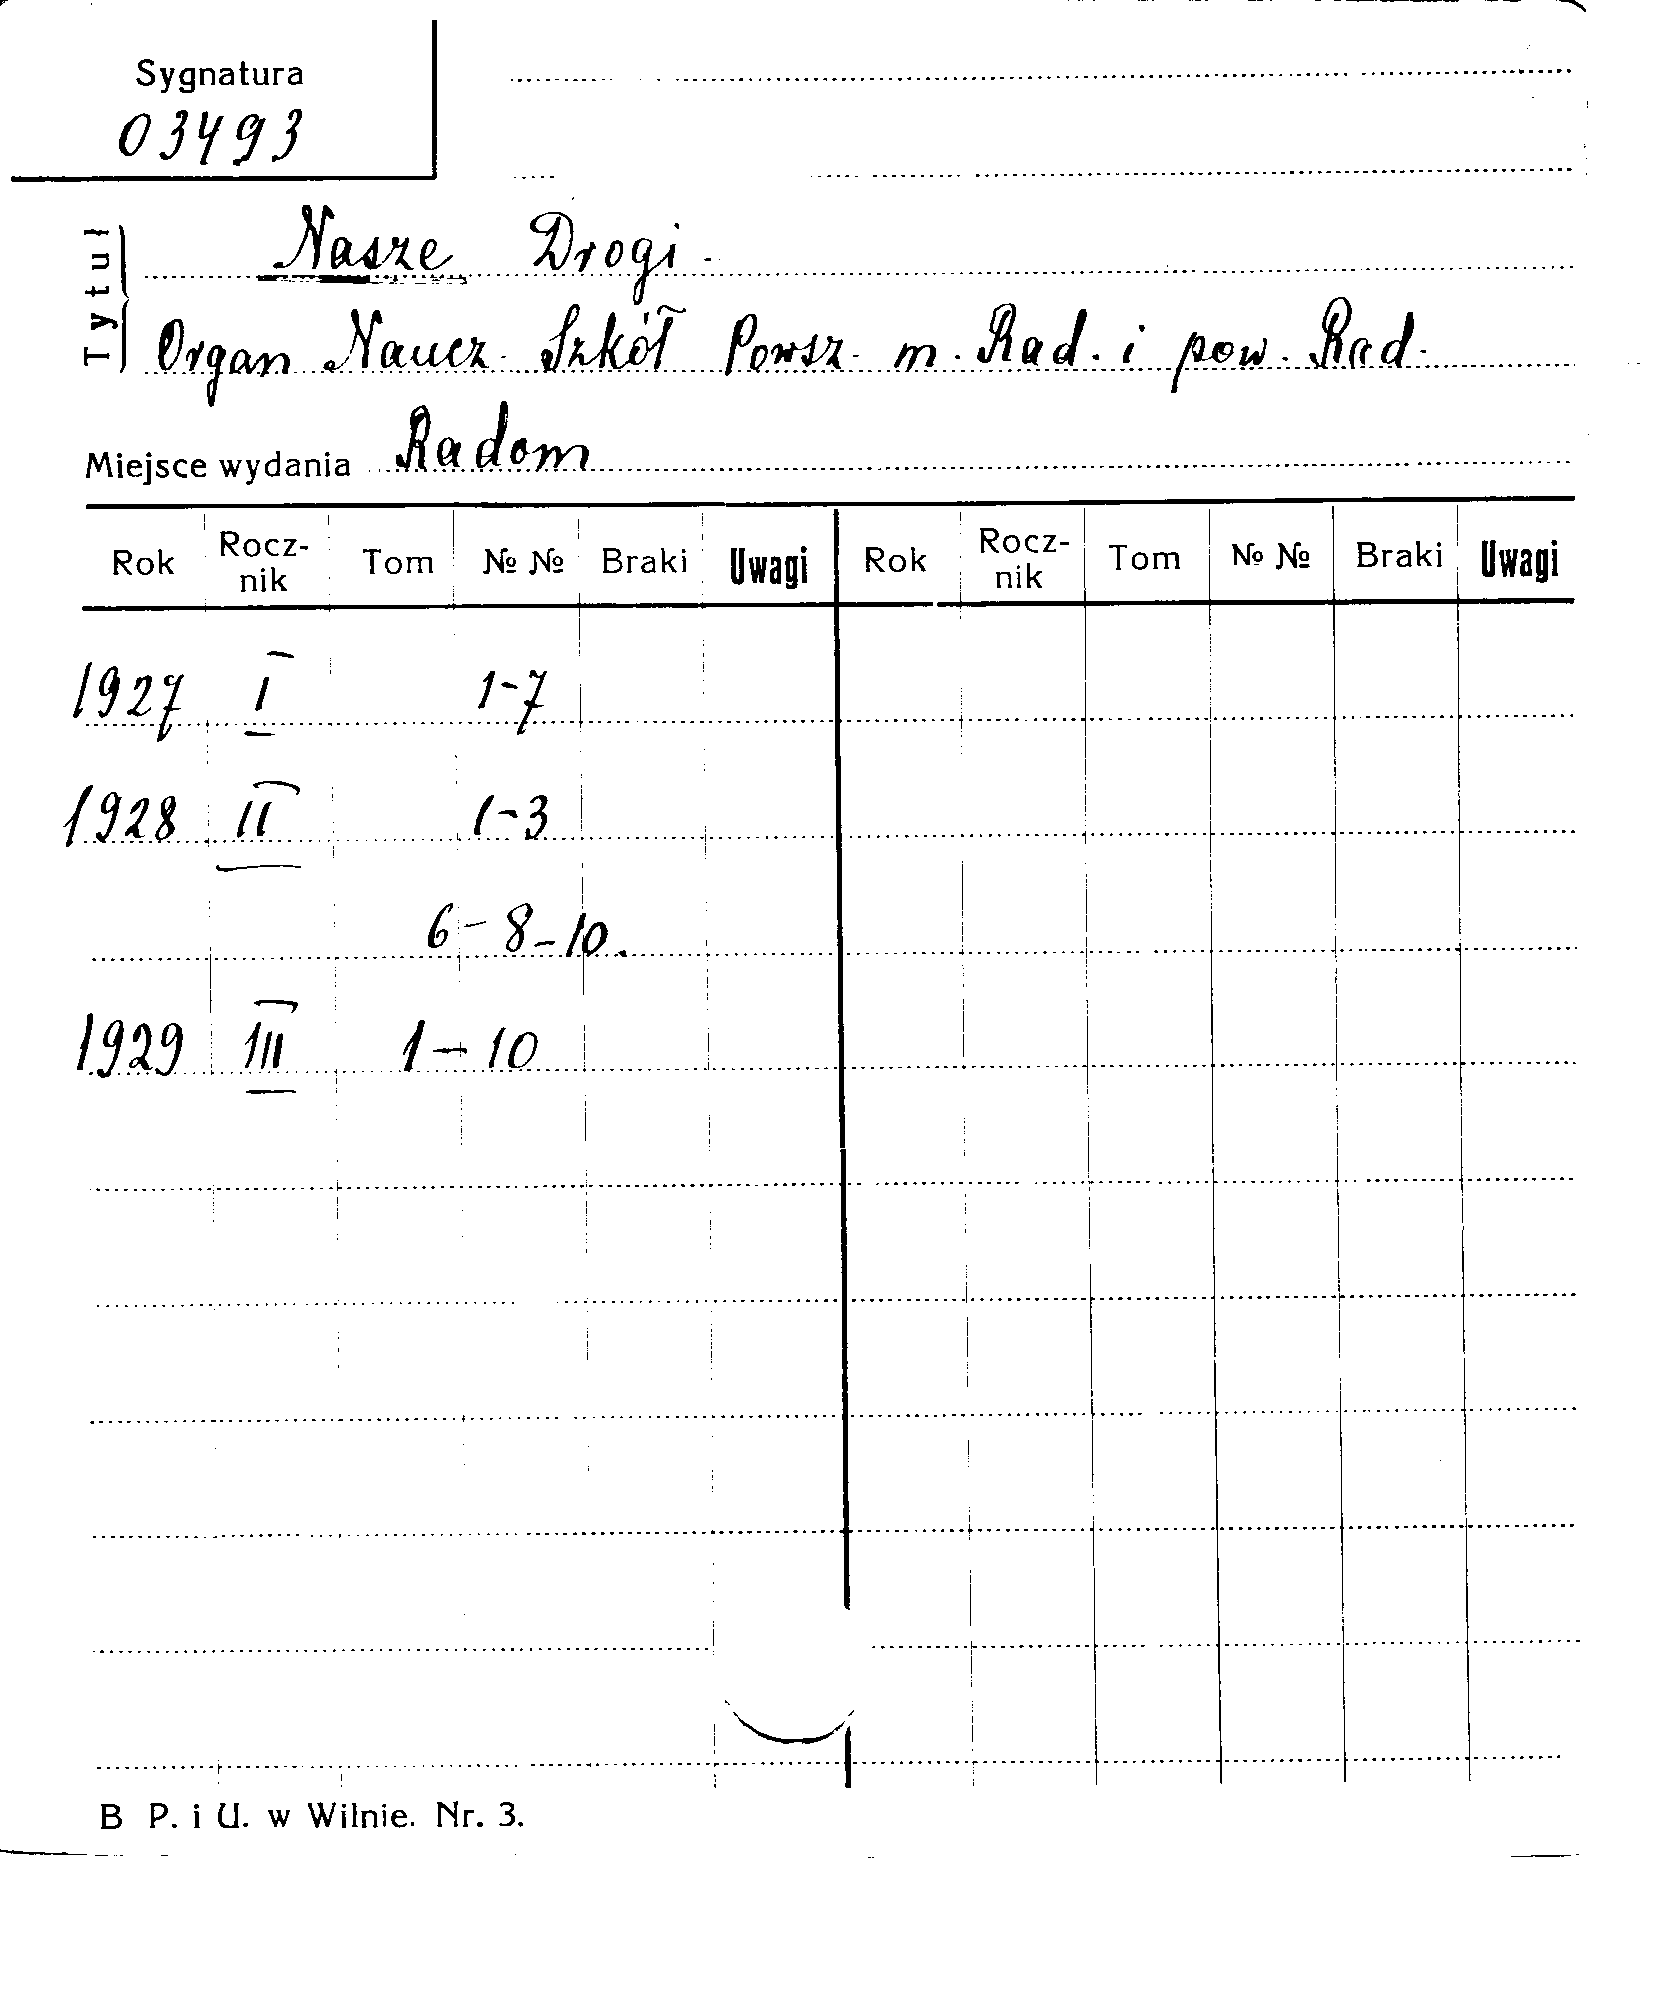 Sygnatura
03493
Tytuł
Nasze Drogi.
Organ Naucz. Szkół Powsz. m. Rad. i pow. Rad.
Miejsce wydania Radom
Rok Rocz-nik Tom № № Braki Uwagi Rok Rocz-nik Tom № № Braki Uwagi
1927 I 1-7
1928 II 1-3
6-8-10.
1929 III 1-10
B P. i U. w Wilnie. Nr. 3.